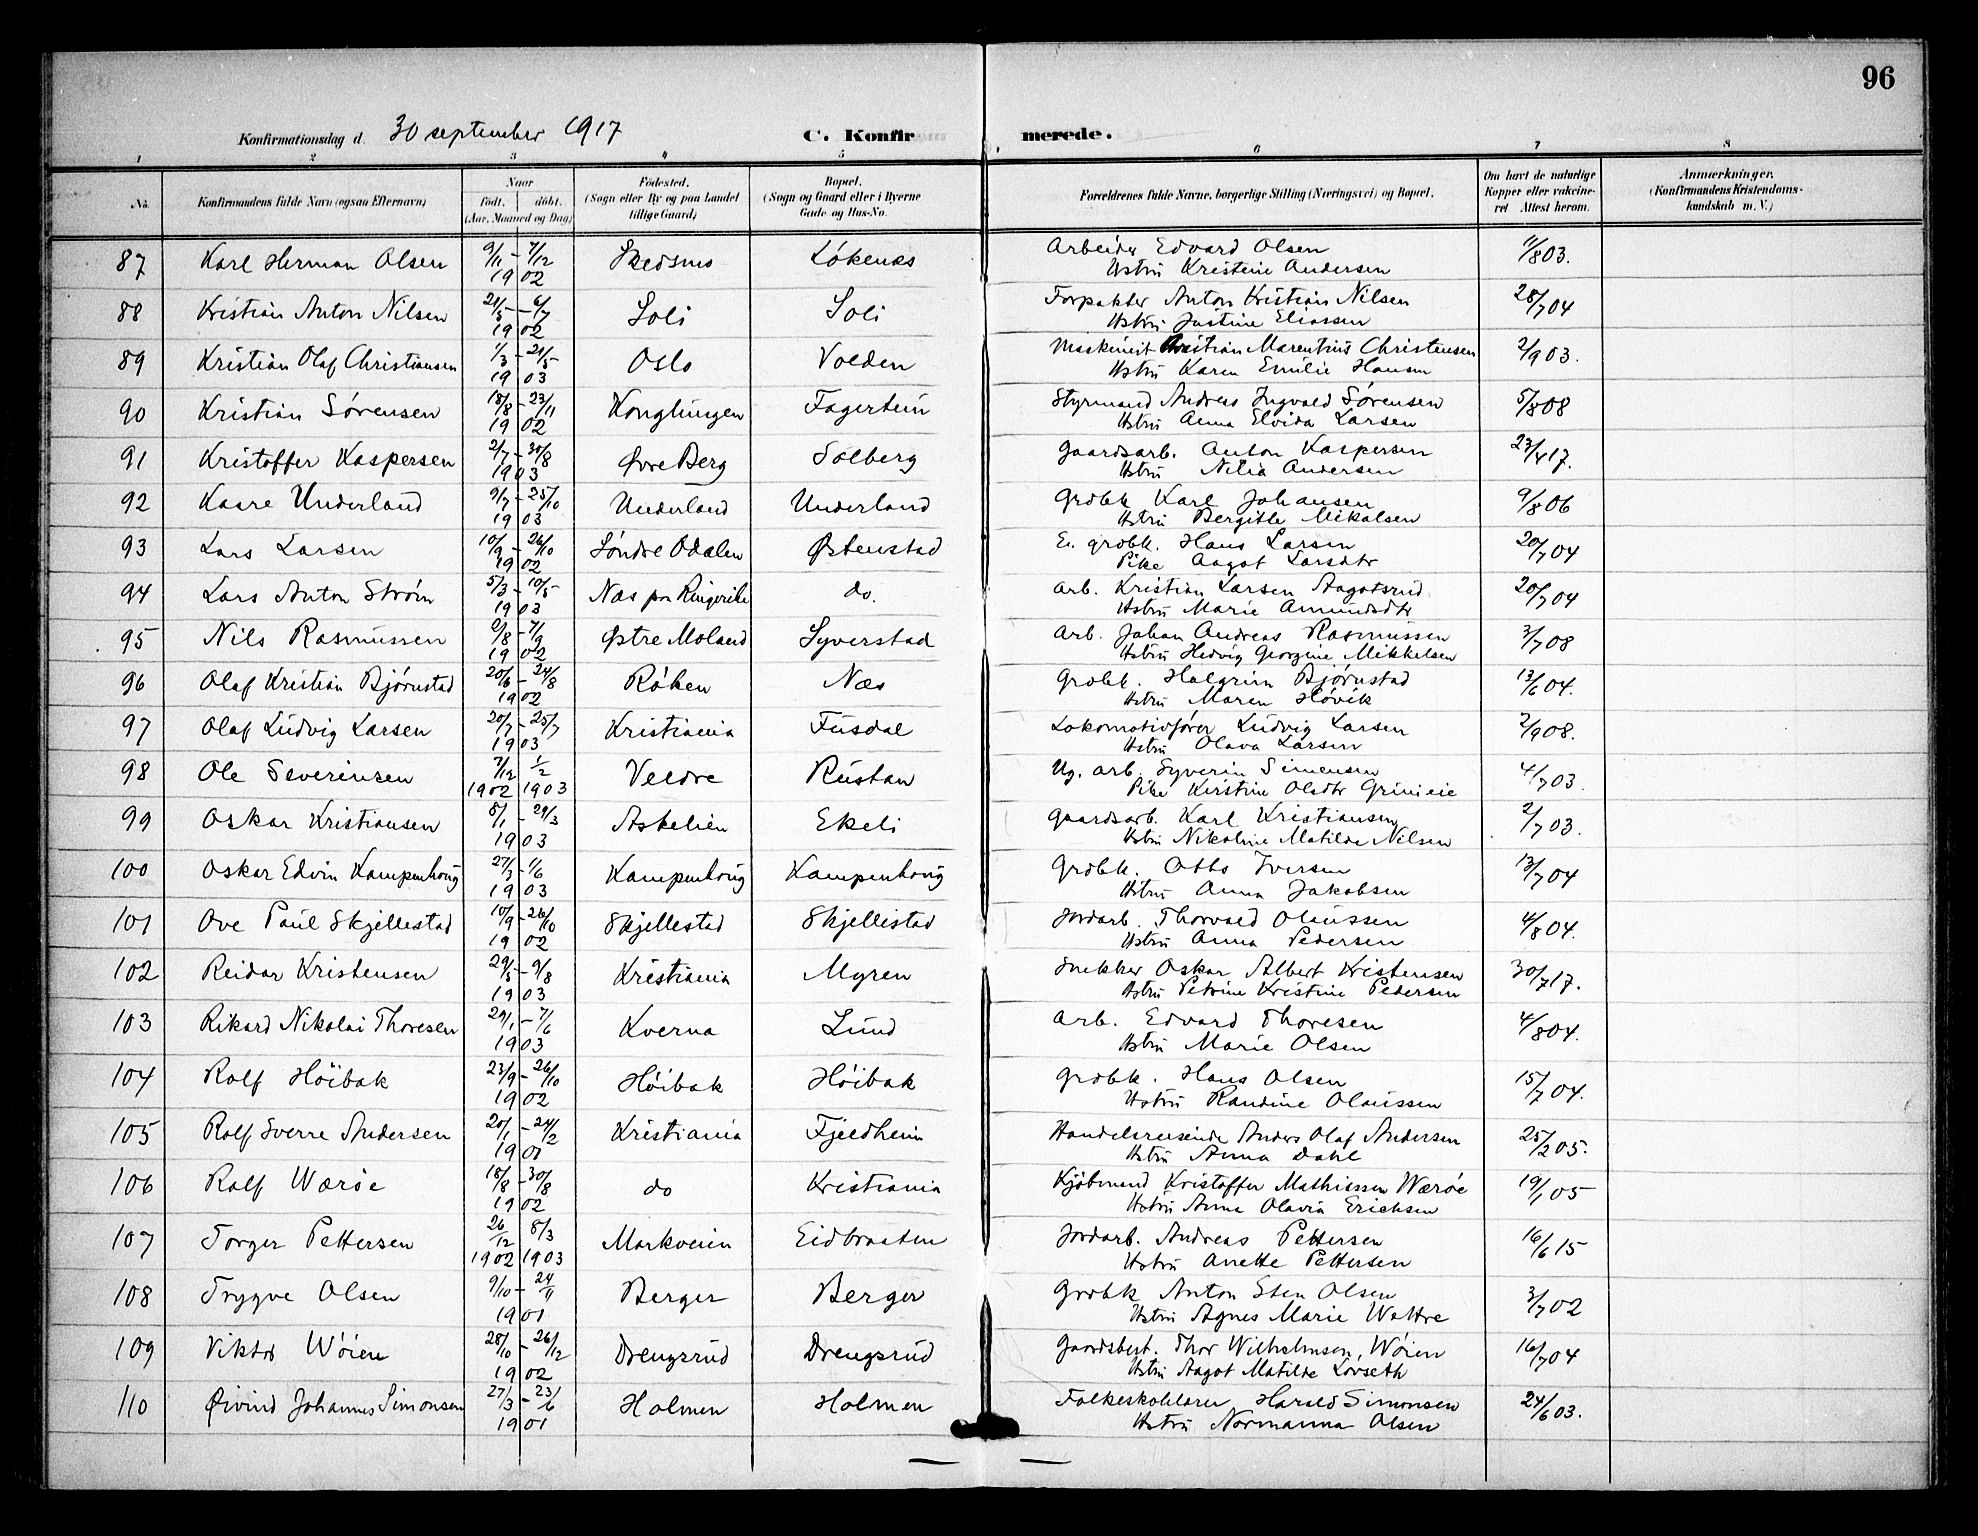 96
Konfirmationsdag d. 30 september 1917 C. Konfirmerede.
1 2 3 4 5 6 7 8
No. Konfirmandens fulde Navn (ogsaa Efternavn) Naar født. døbt. (Aar, Maaned og Dag) Fødested. (Sogn eller By og paa Landet tillige Gaard) Bopæl. (Sogn og Gaard eller i Byerne Gade og Hus-No. Forældrenes fulde Navne, borgerlige Stilling (Næringsvei) og Bopæl. Om havt de naturlige Kopper eller vakcineret Attest herom. Anmærkninger. (Konfirmandens Kristendomskundskab m. V.)
87 Karl Herman Olsen 9/11 - 7/12 1902 Skedsmo Løkenes Arbeider Edvard Olsen 11/8 03.
Hstru Kristine Andersen
88 Kristian Anton Nilsen 21/5 - 6/7 1902 Soli Soli Forpakter Anton Kristian Nilsen 28/7 04
Hstru Justine Eliassen
89 Kristian Olaf Christiansen 1/3 - 21/5 1903 Oslo Volden Maskinist Kristian Marentius Christensen 2/9 03.
Hstru Karen Emilie Hansen
90 Kristian Sørensen 18/8 - 23/11 1902 Konglungen Fagertun Styrmand Andreas Ingvald Sørensen 5/8 08
Hstru Anna Elvida Larsen
91 Kristoffer Kaspersen 2/7 - 30/8 1903 Øvre Berg Solberg Gaardsarb. Anton Kaspersen 23/4 17.
Hstru Nilia Andersen
92 Kaare Underland 9/7 - 25/10 1903 Underland Underland Grdbk Karl Johansen 9/8 06
Hstru Bergitte Mikalsen
93 Lars Larsen 10/9 - 26/10 1902 Søndre Odalen Østenstad E. grdbk. Hans Larsen 20/7 04
Pike Aagot Larsdtr
94 Lars Anton Strøm 5/3 - 10/5 1903 Næs paa Ringerike do. Arb. Kristian Larsen Aagotsrud 20/7 04
Hstru Marie Amundsdtr
95 Nils Rasmussen 2/8 - 7/9 1902 Østre Moland Syverstad Arb. Johan Andreas Rasmussen 3/7 08
Hstru Hedvig Georgine Mikkelsen
96 Olaf Kristian Bjørnstad 20/6 - 24/8 1902 Røken Næs Grdbk. Halgrim Bjørnstad 13/6 04.
Hstru Maren Høvik
97 Olaf Ludvig Larsen 20/7 - 25/7 1903 Kristiania Fusdal Lokomotivfører Ludvig Larsen 2/9 08.
Hstru Olava Larsen
98 Ole Severinsen 7/12 1902 1/2 1903 Veldre Rustan Ug. arb. Syverin Simensen 4/7 03.
Pike Kirstine Olsdtr
99 Oskar Kristiansen 8/1 - 29/3 1903 Askelien Ekeli Gaardsarb. Karl Kristiansen 2/7 03.
Hstru Nikoline Matilde Nilsen
100 Oskar Edvin Kampenhoug 27/3 - 1/6 1903 Kampenhoug Kampenhoug Grdbk. Otto Iversen 13/7 04
Hstru Anna Jakobsen
101 Ove Paul Skjellestad 10/9 - 26/10 1902 Skjellestad Skjellestad Jordarb. Thorvald Olaussen 4/8 04.
Hstru Anna Pedersen
102 Reidar Kristensen 29/5 - 9/8 1903 Kristiania Myren Snekker Oskar Albert Kristensen 30/7 17.
Hstru Petrine Kristine Pedersen
103 Rikard Nikolai Thoresen 29/1 - 7/6 1903 Kverna Lund Arb. Edvard Thoresen 4/8 04.
Hstru Marie Olsen
104 Rolf Høibak 23/9 - 26/10 1902 Høibak Høibak Grdbk. Hans Olsen 15/7 04.
Hstru Randine Olaussen
105 Rolf Sverre Andersen 20/1 - 24/2 1901 Kristiania Fjeldheim Handelsreisende Anders Olaf Andersen 25/2 05.
Hstru Anna Dahl
106 Rolf Werøe 18/8 - 30/8 1902 do Kristiania Kjøbmand Kristoffer Mathiassen Werøe 19/1 05
Hstru Anna Olavia Erichsen
107 Torger Pettersen 26/12 1902 8/3 1903 Markveien Eidbraaten Jordarb. Andreas Pettersen 16/6 15
Hstru Anette Pettersen
108 Trygve Olsen 9/10 - 24/11 1901 Berger Berger Grdbk Anton Sten Olsen 3/7 02
Hstru Agnes Marie Wettre
109 Viktor Wøien 28/10 - 26/12 1902 Drengsrud Drengsrud Gaardsbest. Thor Wilhelmsen Wøien 16/7 04
Hstru Aagot Matilde Lovseth
110 Øivind Johannes Simonsen 27/3 - 23/6 1901 Holmen Holmen Folkeskolelærer Harald Simonsen 24/6 03.
Hstru Normanna Olsen